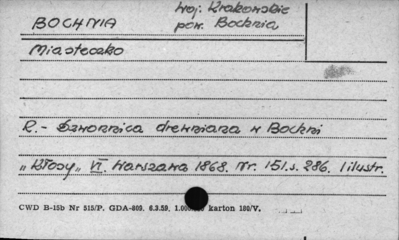 BOCHNIA
Woj. Krakowskie
pow. Bochnia
Miasteczko
R. - Dzwonnica drewniana w Bochni
„Kłosy„ VI. Warszawa 1868. Nr. 151. s. 286. 1 ilustr.
CWD B-15b Nr 515/P. GDA-809. 6.3.59. karton 180/V.